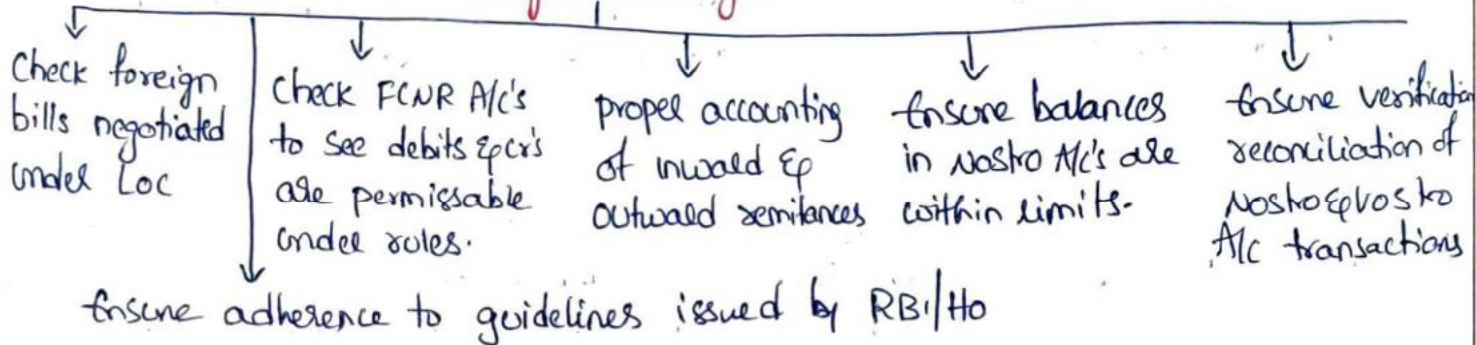 Check foreign
bills negotiated
under Loc
Check FCNR A/c's
to see debits & cr's
are permissable
under rules.
proper accounting
of inward &
outward remitances
Ensure balances
in Nostro A/c's are
within limits.
Ensure verification
reconciliation of
Nostro & vostro
A/c transactions
Ensure adherence to guidelines issued by RBI/Ho